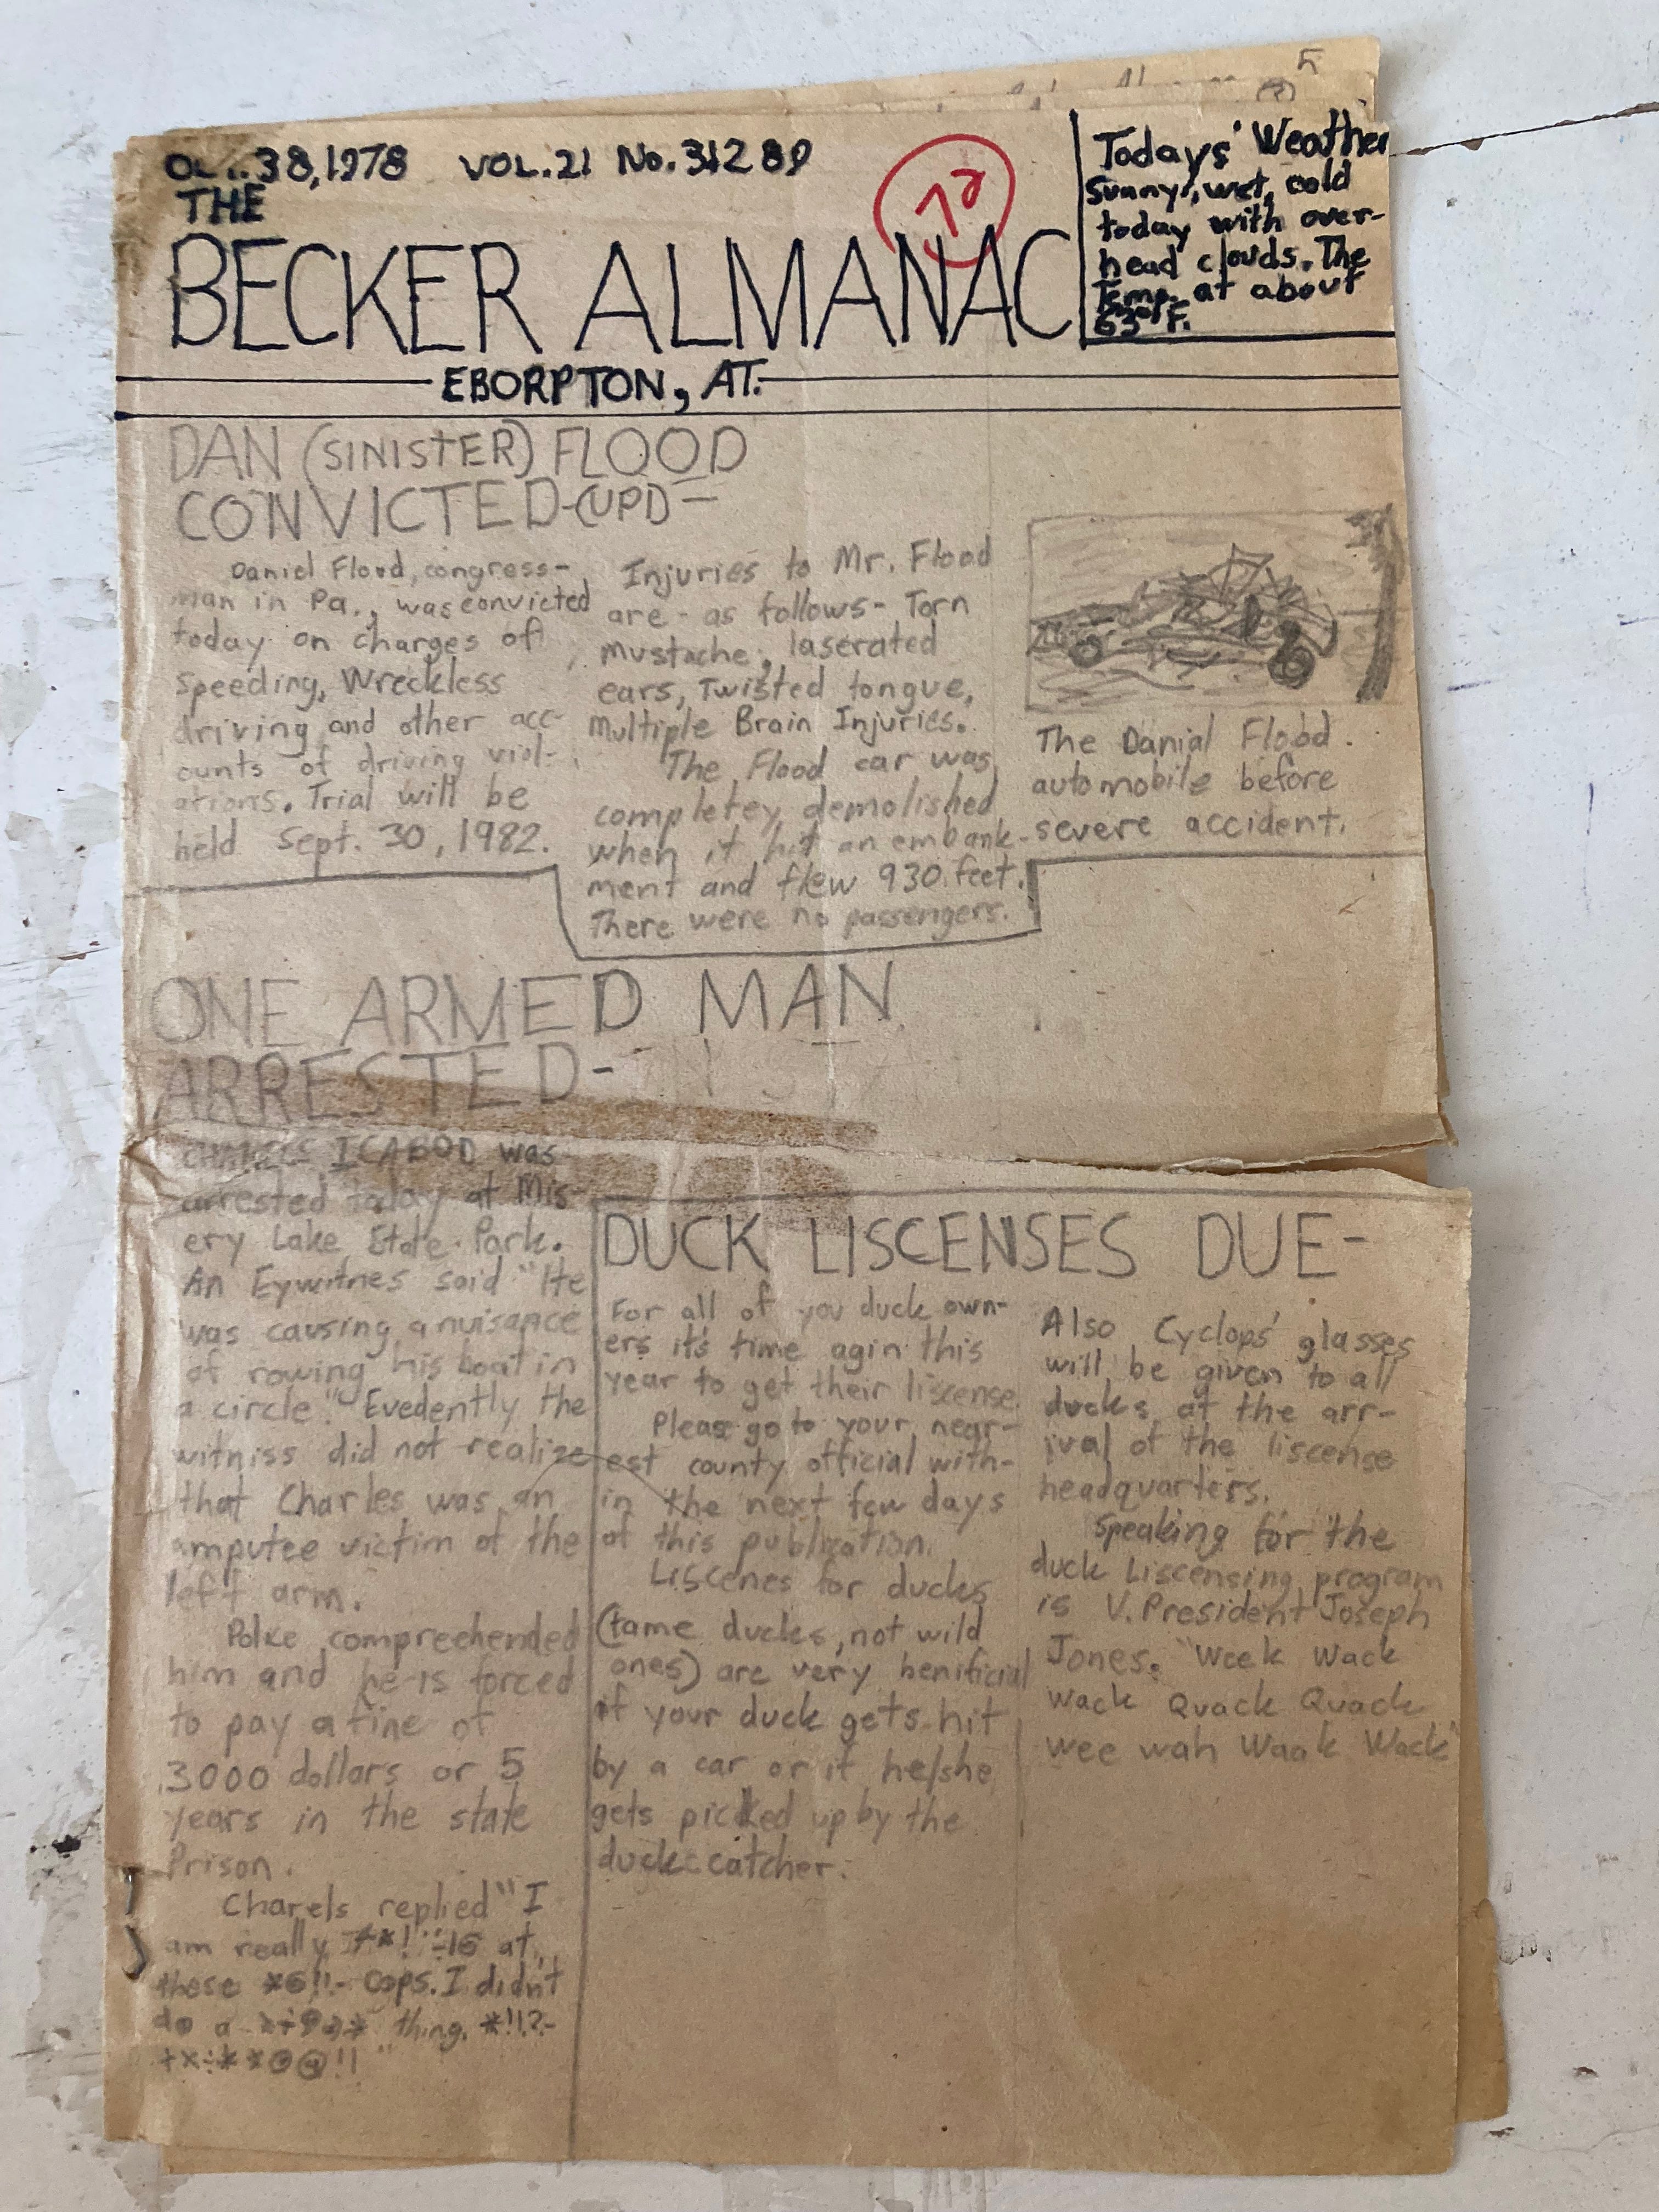 38, 1978 VOL. 21 No. 31289
THE
BECKER ALMANAC
EBORPTON, AT.
72
Todays' Weather
Sunny, wet, cold
today with over-
head clouds. The
Temp. at about
63° F.
5
DAN (SINISTER) FLOOD
CONVICTED-(UPD-
Daniel Flood, congress-
man in Pa., was convicted
today on charges of
speeding, Wreckless
driving and other acc-
ounts of driving viol-
ations. Trial will be
held Sept. 30, 1982.
Injuries to Mr. Flood
are - as follows - Torn
Mustache, laserated
ears, Twisted tongue,
Multiple Brain Injuries.
The Flood car was
completey demolished
when it hit an embank-
ment and flew 930 feet.
There were no passengers.
The Danial Flood
automobile before
severe accident.
ONE ARMED MAN
ARRESTED-
CHARLES ICABOD was
arrested today at Mis-
ery Lake State Park.
An Eywitnes said "He
was causing a nuisance
of rowing his boat in
a circle." Evedently the
witniss did not realize
that Charles was an
amputee victim of the
left arm.
Police compreehended
him and he is forced
to pay a fine of
3000 dollars or 5
years in the state
Prison.
Charels replied "I
am really at
these cops. I didn't
do a thing.
DUCK LISCENSES DUE-
For all of you duck own-
ers it's time agin this
year to get their liscense.
Please go to your near-
est county official with-
in the next few days
of this publication.
Liscenes for ducks
(tame ducks, not wild
ones) are very benificial
if your duck gets hit
by a car or if he/she
gets picked up by the
duck catcher.
Also Cyclops' glasses
will be given to all
ducks at the arr-
ival of the liscense
headquarters.
Speaking for the
duck Liscensing program
is V. President Joseph
Jones. "Week Wack
Wack Quack Quack
wee wah Waak Wack"